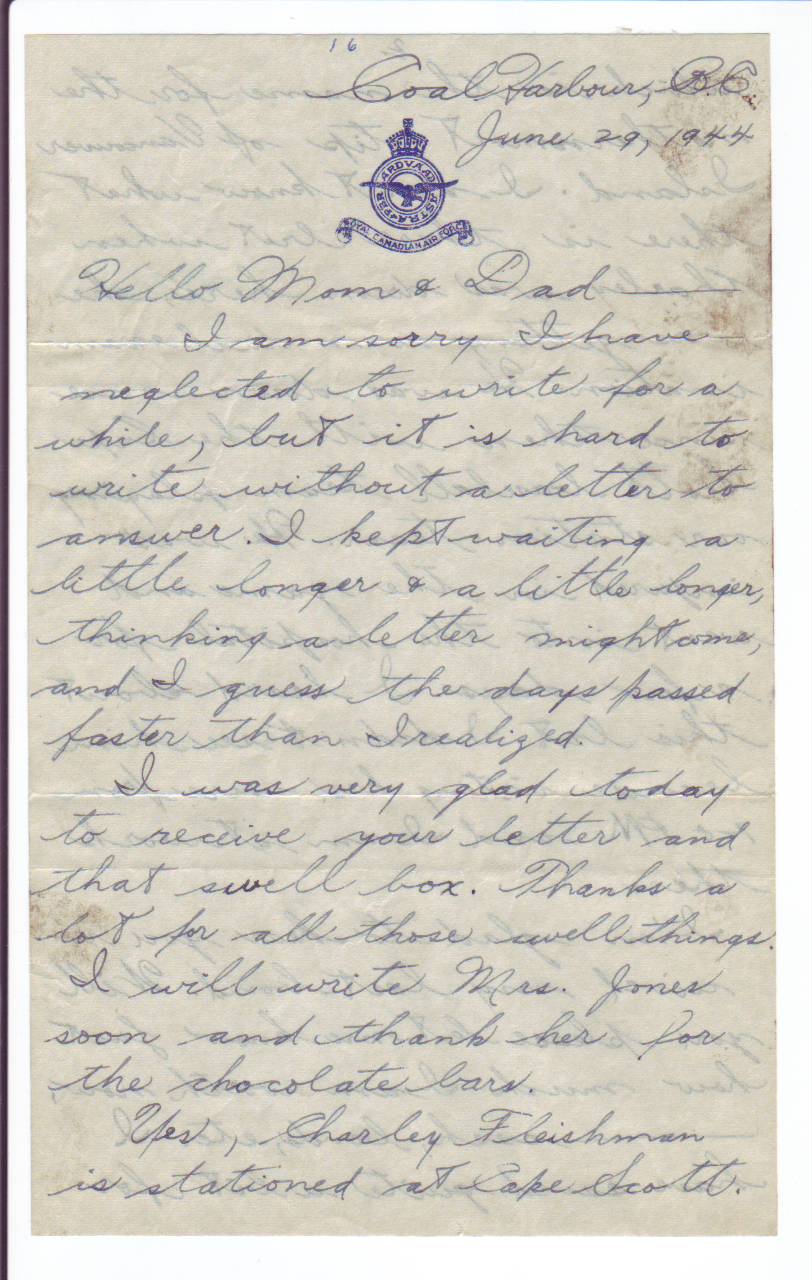 16
Coal Harbour, B.C.
June 29, 1944
PER ARDVA AD ASTRA
ROYAL CANADIAN AIR FORCE
Hello Mom & Dad —
I am sorry I have
neglected to write for a
while, but it is hard to
write without a letter to
answer. I kept waiting a
little longer & a little longer,
thinking a letter might come,
and I guess the days passed
faster than I realized.
I was very glad today
to receive your letter and
that swell box. Thanks a
lot for all those swell things.
I will write Mrs. Jones
soon and thank her for
the chocolate bars.
Yes, Charley Fleishman
is stationed at Cape Scott.